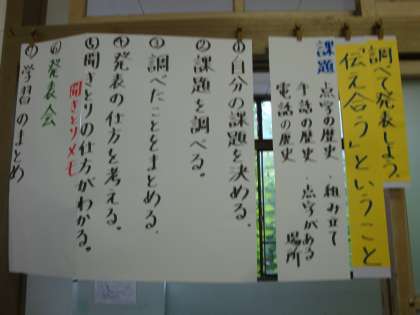 調べて発表しよう。
「伝え合う」ということ
課題
点字の歴史・組み立て
手話の歴史・点字がある場所
電話の歴史
①自分の課題を決める。
②課題を調べる。
③調べたことをまとめる。
④発表の仕方を考える。
⑤聞きとりの仕方がわかる。
聞きとりメモ
⑥発表会
⑦学習のまとめ